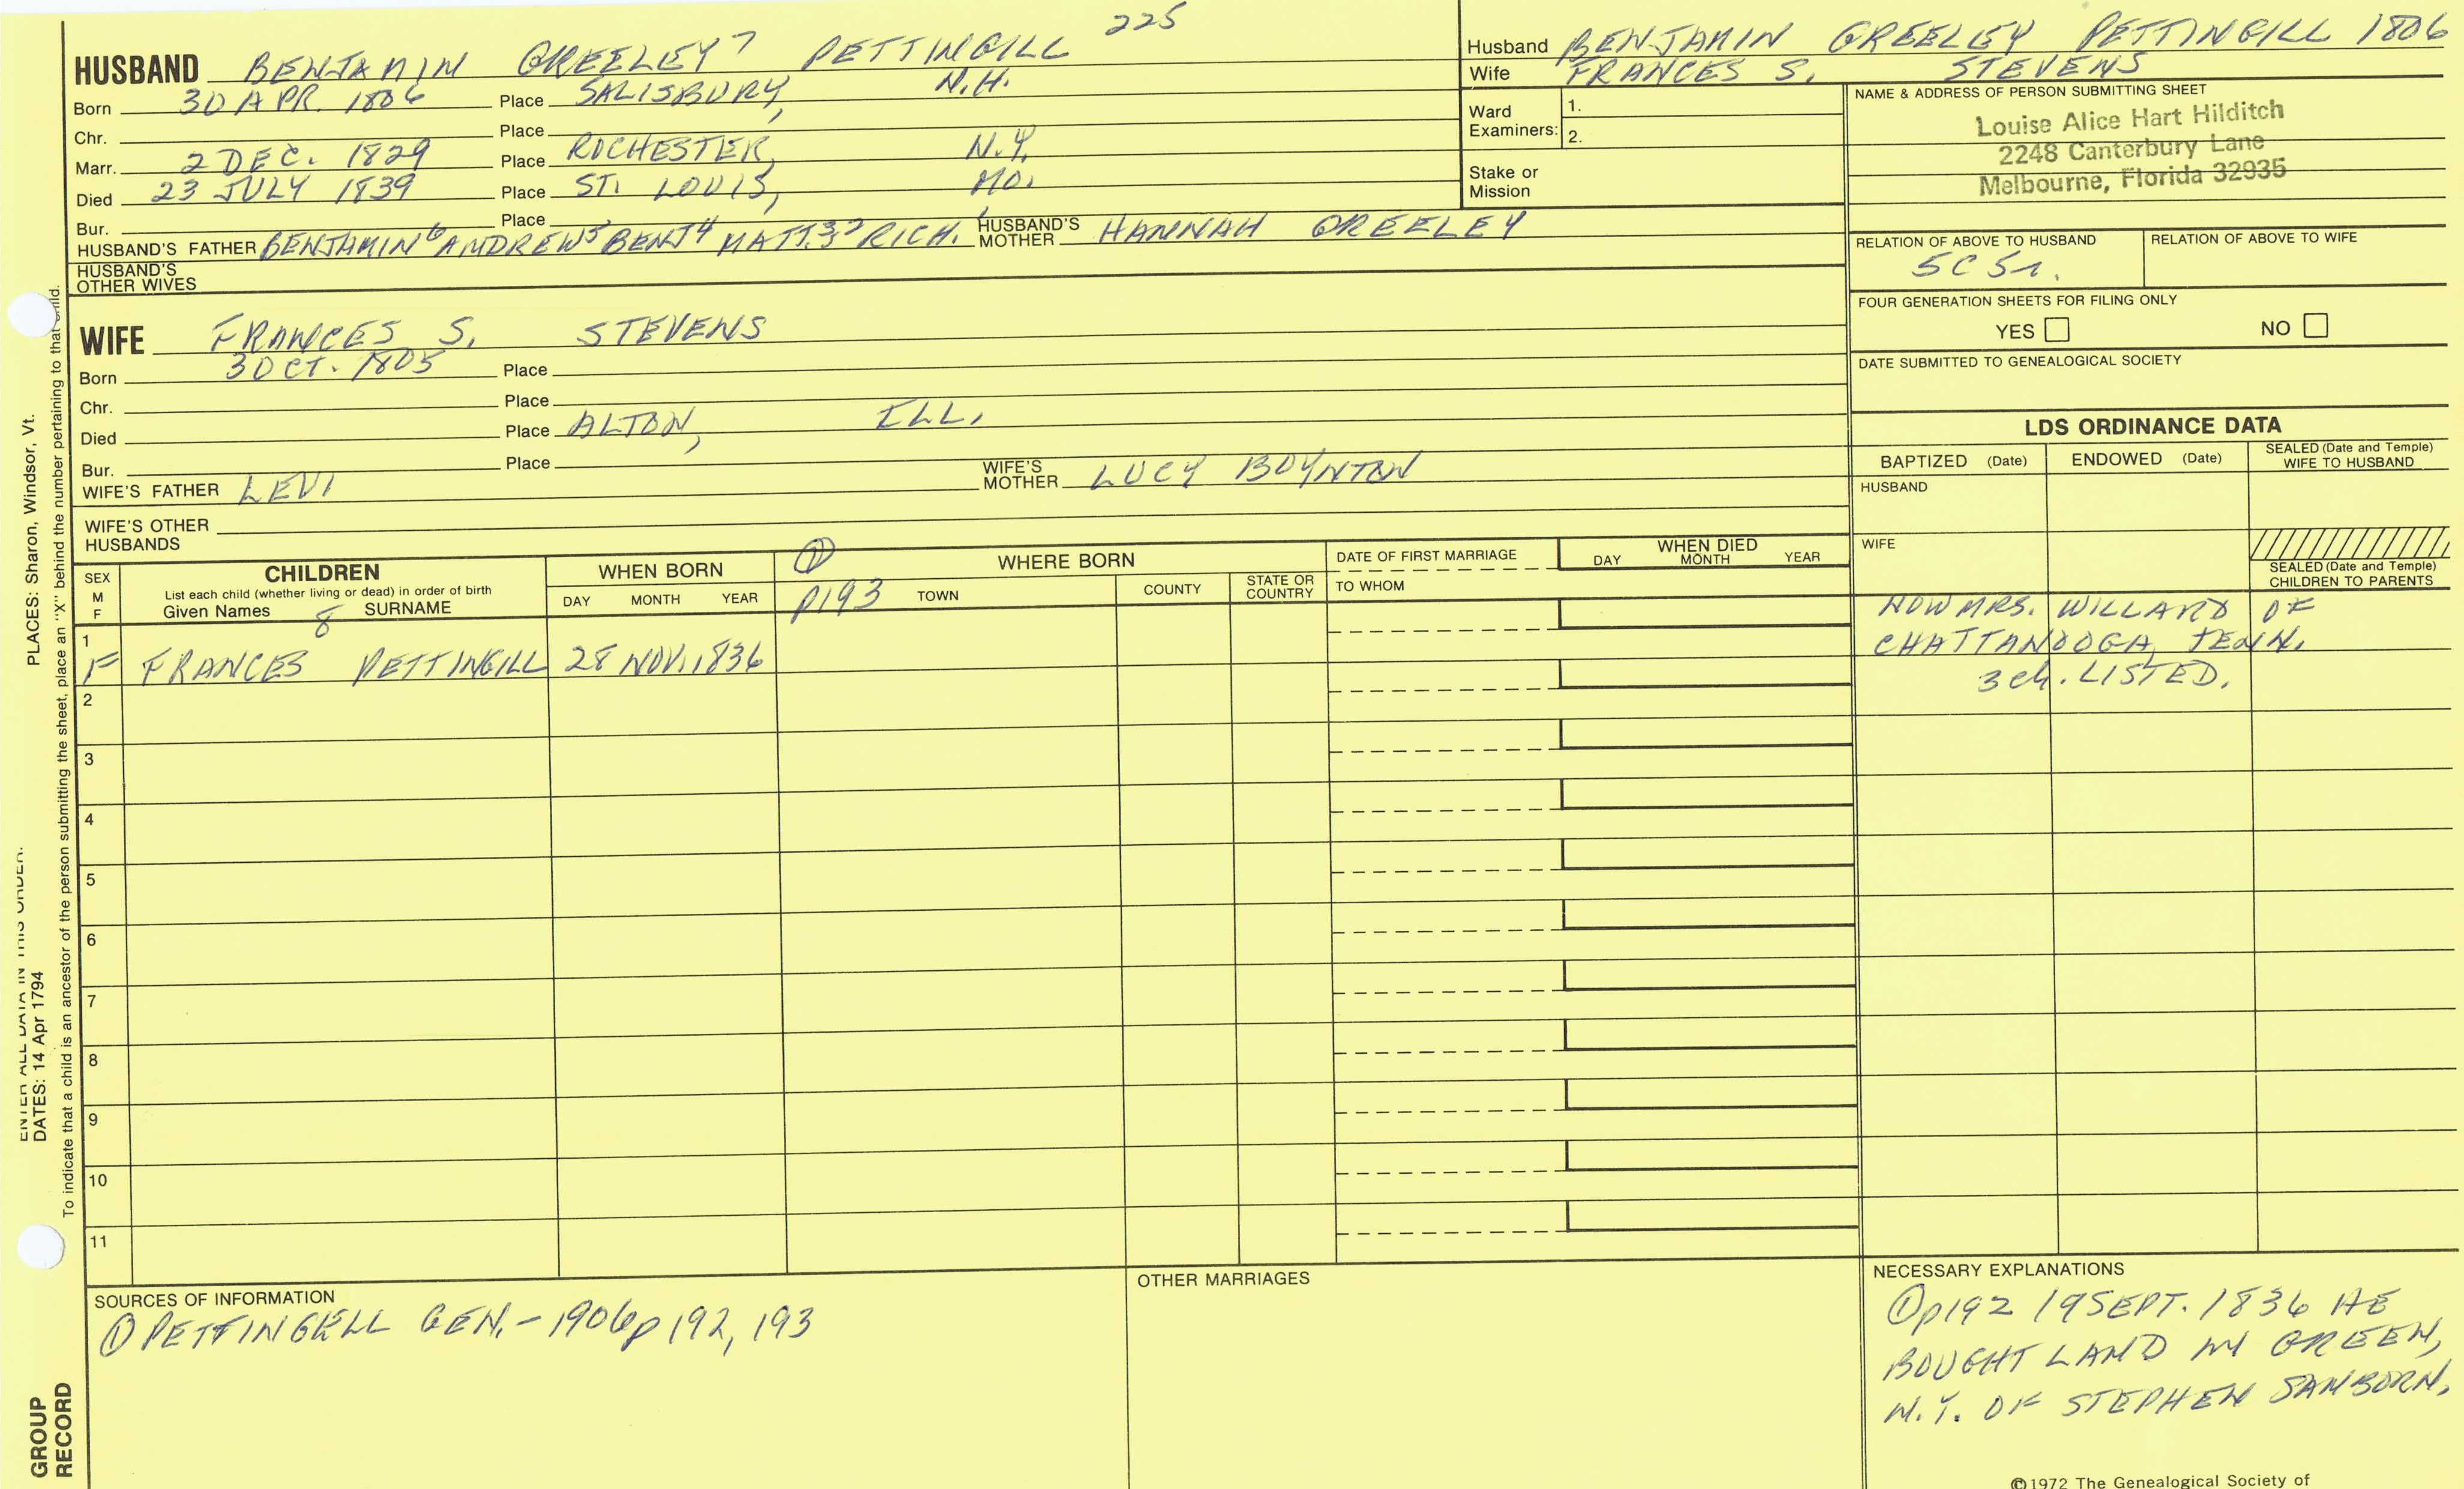 HUSBAND BENJAMIN GREELEY 7 PETTINGILL 225
Born 30 APR. 1806 Place SALISBURY, N.H.
Chr. Place
Marr. 2 DEC. 1829 Place ROCHESTER, N.Y.
Died 23 JULY 1839 Place ST. LOUIS, MO.
Bur. Place
HUSBAND'S FATHER BENJAMIN 6 ANDREW 5 BENJ 4 MATT. 3 2 RICH. HUSBAND'S MOTHER HANNAH GREELEY
HUSBAND'S OTHER WIVES
WIFE FRANCES S. STEVENS
Born 3 OCT. 1805 Place
Chr. Place
Died Place ALTON, ILL.
Bur. Place
WIFE'S FATHER LEVI WIFE'S MOTHER LUCY BOYNTON
WIFE'S OTHER HUSBANDS
Husband BENJAMIN GREELEY PETTINGILL 1806
Wife FRANCES S. STEVENS
Ward Examiners: 1.
2.
Stake or Mission
NAME & ADDRESS OF PERSON SUBMITTING SHEET
Louise Alice Hart Hilditch
2248 Canterbury Lane
Melbourne, Florida 32935
RELATION OF ABOVE TO HUSBAND RELATION OF ABOVE TO WIFE
5C 5r.
FOUR GENERATION SHEETS FOR FILING ONLY
YES NO
DATE SUBMITTED TO GENEALOGICAL SOCIETY
LDS ORDINANCE DATA
BAPTIZED (Date) ENDOWED (Date) SEALED (Date and Temple) WIFE TO HUSBAND
HUSBAND
WIFE
SEALED (Date and Temple) CHILDREN TO PARENTS
NOW MRS. WILLARD OF
CHATTANOOGA, TENN.
3 ch. LISTED.
SEX M F
CHILDREN
List each child (whether living or dead) in order of birth
Given Names 8 SURNAME
WHEN BORN
DAY MONTH YEAR
① p193
WHERE BORN
TOWN COUNTY STATE OR COUNTRY
DATE OF FIRST MARRIAGE
TO WHOM
WHEN DIED
DAY MONTH YEAR
1
F FRANCES PETTINGILL 28 NOV. 1836
2
3
4
5
6
7
8
9
10
11
SOURCES OF INFORMATION
① PETTINGELL GEN. - 1906 p 192, 193
OTHER MARRIAGES
NECESSARY EXPLANATIONS
① p192 19 SEPT. 1836 HE
BOUGHT LAND IN GREEN,
N.Y. OF STEPHEN SAMBORN.
©1972 The Genealogical Society of
ENTER ALL DATA IN THIS ORDER:
DATES: 14 Apr 1794 PLACES: Sharon, Windsor, Vt.
To indicate that a child is an ancestor of the person submitting the sheet, place an "X" behind the number pertaining to that child.
GROUP
RECORD